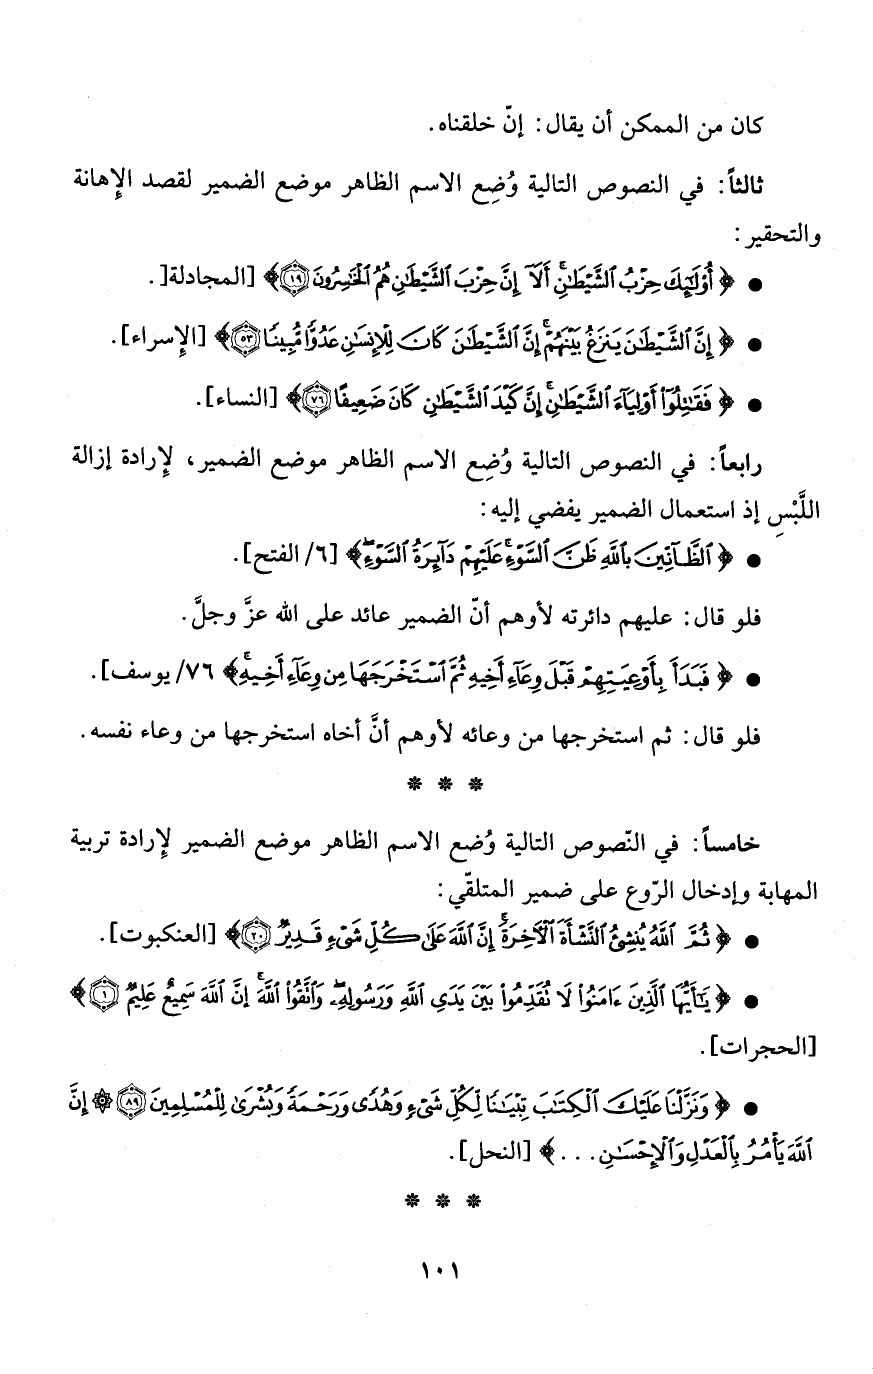 كان من الممكن أن يقال: إنّ خلقناه.
ثالثاً: في النصوص التالية وُضِع الاسم الظاهر موضع الضمير لقصد الإهانة
والتحقير:
● ﴿أُوْلَٰٓئِكَ حِزْبُ ٱلشَّيْطَٰنِۚ أَلَآ إِنَّ حِزْبَ ٱلشَّيْطَٰنِ هُمُ ٱلْخَٰسِرُونَ ١٩﴾ [المجادلة[.
● ﴿إِنَّ ٱلشَّيْطَٰنَ يَنزَغُ بَيْنَهُمْۚ إِنَّ ٱلشَّيْطَٰنَ كَانَ لِلْإِنسَٰنِ عَدُوًّا مُّبِينًا ٥٣﴾ [الإسراء].
● ﴿فَقَٰتِلُوٓاْ أَوْلِيَآءَ ٱلشَّيْطَٰنِۖ إِنَّ كَيْدَ ٱلشَّيْطَٰنِ كَانَ ضَعِيفًا ٧٦﴾ [النساء].
رابعاً: في النصوص التالية وُضِع الاسم الظاهر موضع الضمير، لإرادة إزالة
اللَّبْسِ إذ استعمال الضمير يفضي إليه:
● ﴿ٱلظَّآنِّينَ بِٱللَّهِ ظَنَّ ٱلسَّوْءِۚ عَلَيْهِمْ دَآئِرَةُ ٱلسَّوْءِۖ﴾ [٦/ الفتح].
فلو قال: عليهم دائرته لأوهم أنّ الضمير عائد على الله عزَّ وجلَّ.
● ﴿فَبَدَأَ بِأَوْعِيَتِهِمْ قَبْلَ وِعَآءِ أَخِيهِ ثُمَّ ٱسْتَخْرَجَهَا مِن وِعَآءِ أَخِيهِۚ﴾ ٧٦/ يوسف].
فلو قال: ثم استخرجها من وعائه لأوهم أنَّ أخاه استخرجها من وعاء نفسه.
* * *
خامساً: في النّصوص التالية وُضع الاسم الظاهر موضع الضمير لإرادة تربية
المهابة وإدخال الرّوع على ضمير المتلقّي:
● ﴿ثُمَّ ٱللَّهُ يُنشِئُ ٱلنَّشْأَةَ ٱلْءَاخِرَةَۚ إِنَّ ٱللَّهَ عَلَىٰ كُلِّ شَىْءٍ قَدِيرٌ ٢٠﴾ [العنكبوت].
● ﴿يَٰٓأَيُّهَا ٱلَّذِينَ ءَامَنُواْ لَا تُقَدِّمُواْ بَيْنَ يَدَىِ ٱللَّهِ وَرَسُولِهِۦۖ وَٱتَّقُواْ ٱللَّهَۚ إِنَّ ٱللَّهَ سَمِيعٌ عَلِيمٌ ١﴾
[الحجرات].
● ﴿وَنَزَّلْنَا عَلَيْكَ ٱلْكِتَٰبَ تِبْيَٰنًا لِّكُلِّ شَىْءٍ وَهُدًى وَرَحْمَةً وَبُشْرَىٰ لِلْمُسْلِمِينَ ٨٩ ۞ إِنَّ
ٱللَّهَ يَأْمُرُ بِٱلْعَدْلِ وَٱلْإِحْسَٰنِ . . .﴾ [النحل].
* * *
١٠١